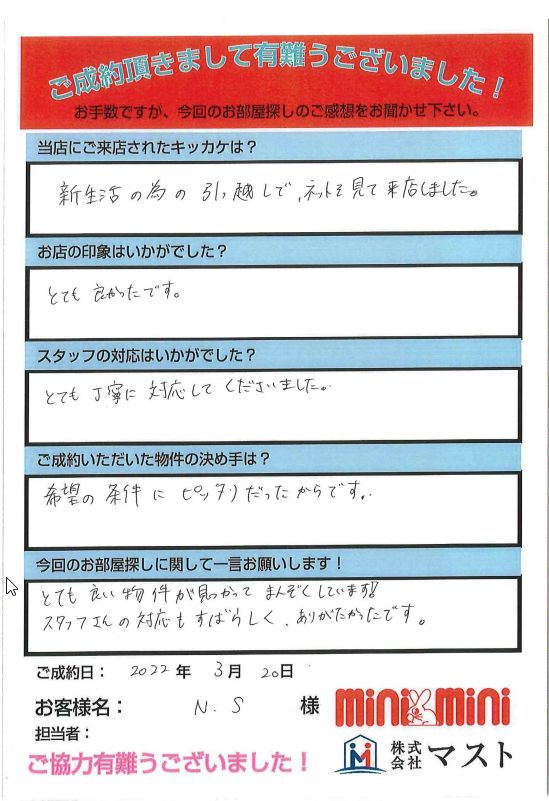 ご成約頂きまして有難うございました！
お手数ですが、今回のお部屋探しのご感想をお聞かせ下さい。
当店にご来店されたキッカケは？
新生活の為の引っ越しで、ネットを見て来店しました。
お店の印象はいかがでした？
とても良かったです。
スタッフの対応はいかがでした？
とても丁寧に対応してくださいました。
ご成約いただいた物件の決め手は？
希望の条件にピッタリだったからです。
今回のお部屋探しに関して一言お願いします！
とても良い物件が見つかってまんぞくしています!!
スタッフさんの対応もすばらしく、ありがたかったです。
ご成約日： 2022年 3月 20日
お客様名： N.S 様
minimini
担当者：
株式会社マスト
ご協力有難うございました！